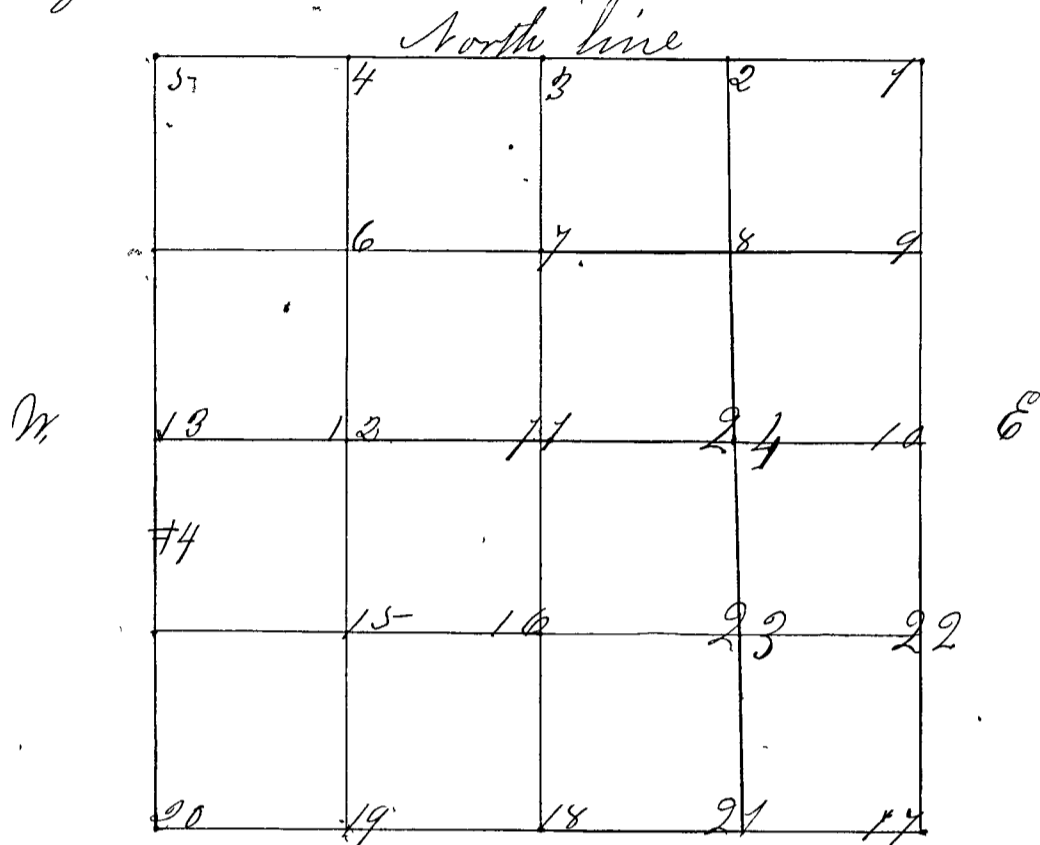 North line
5 4 3 2 1
6 7 8 9
W. E
13 12 11 24 10
14
15 16 23 22
20 19 18 21 17